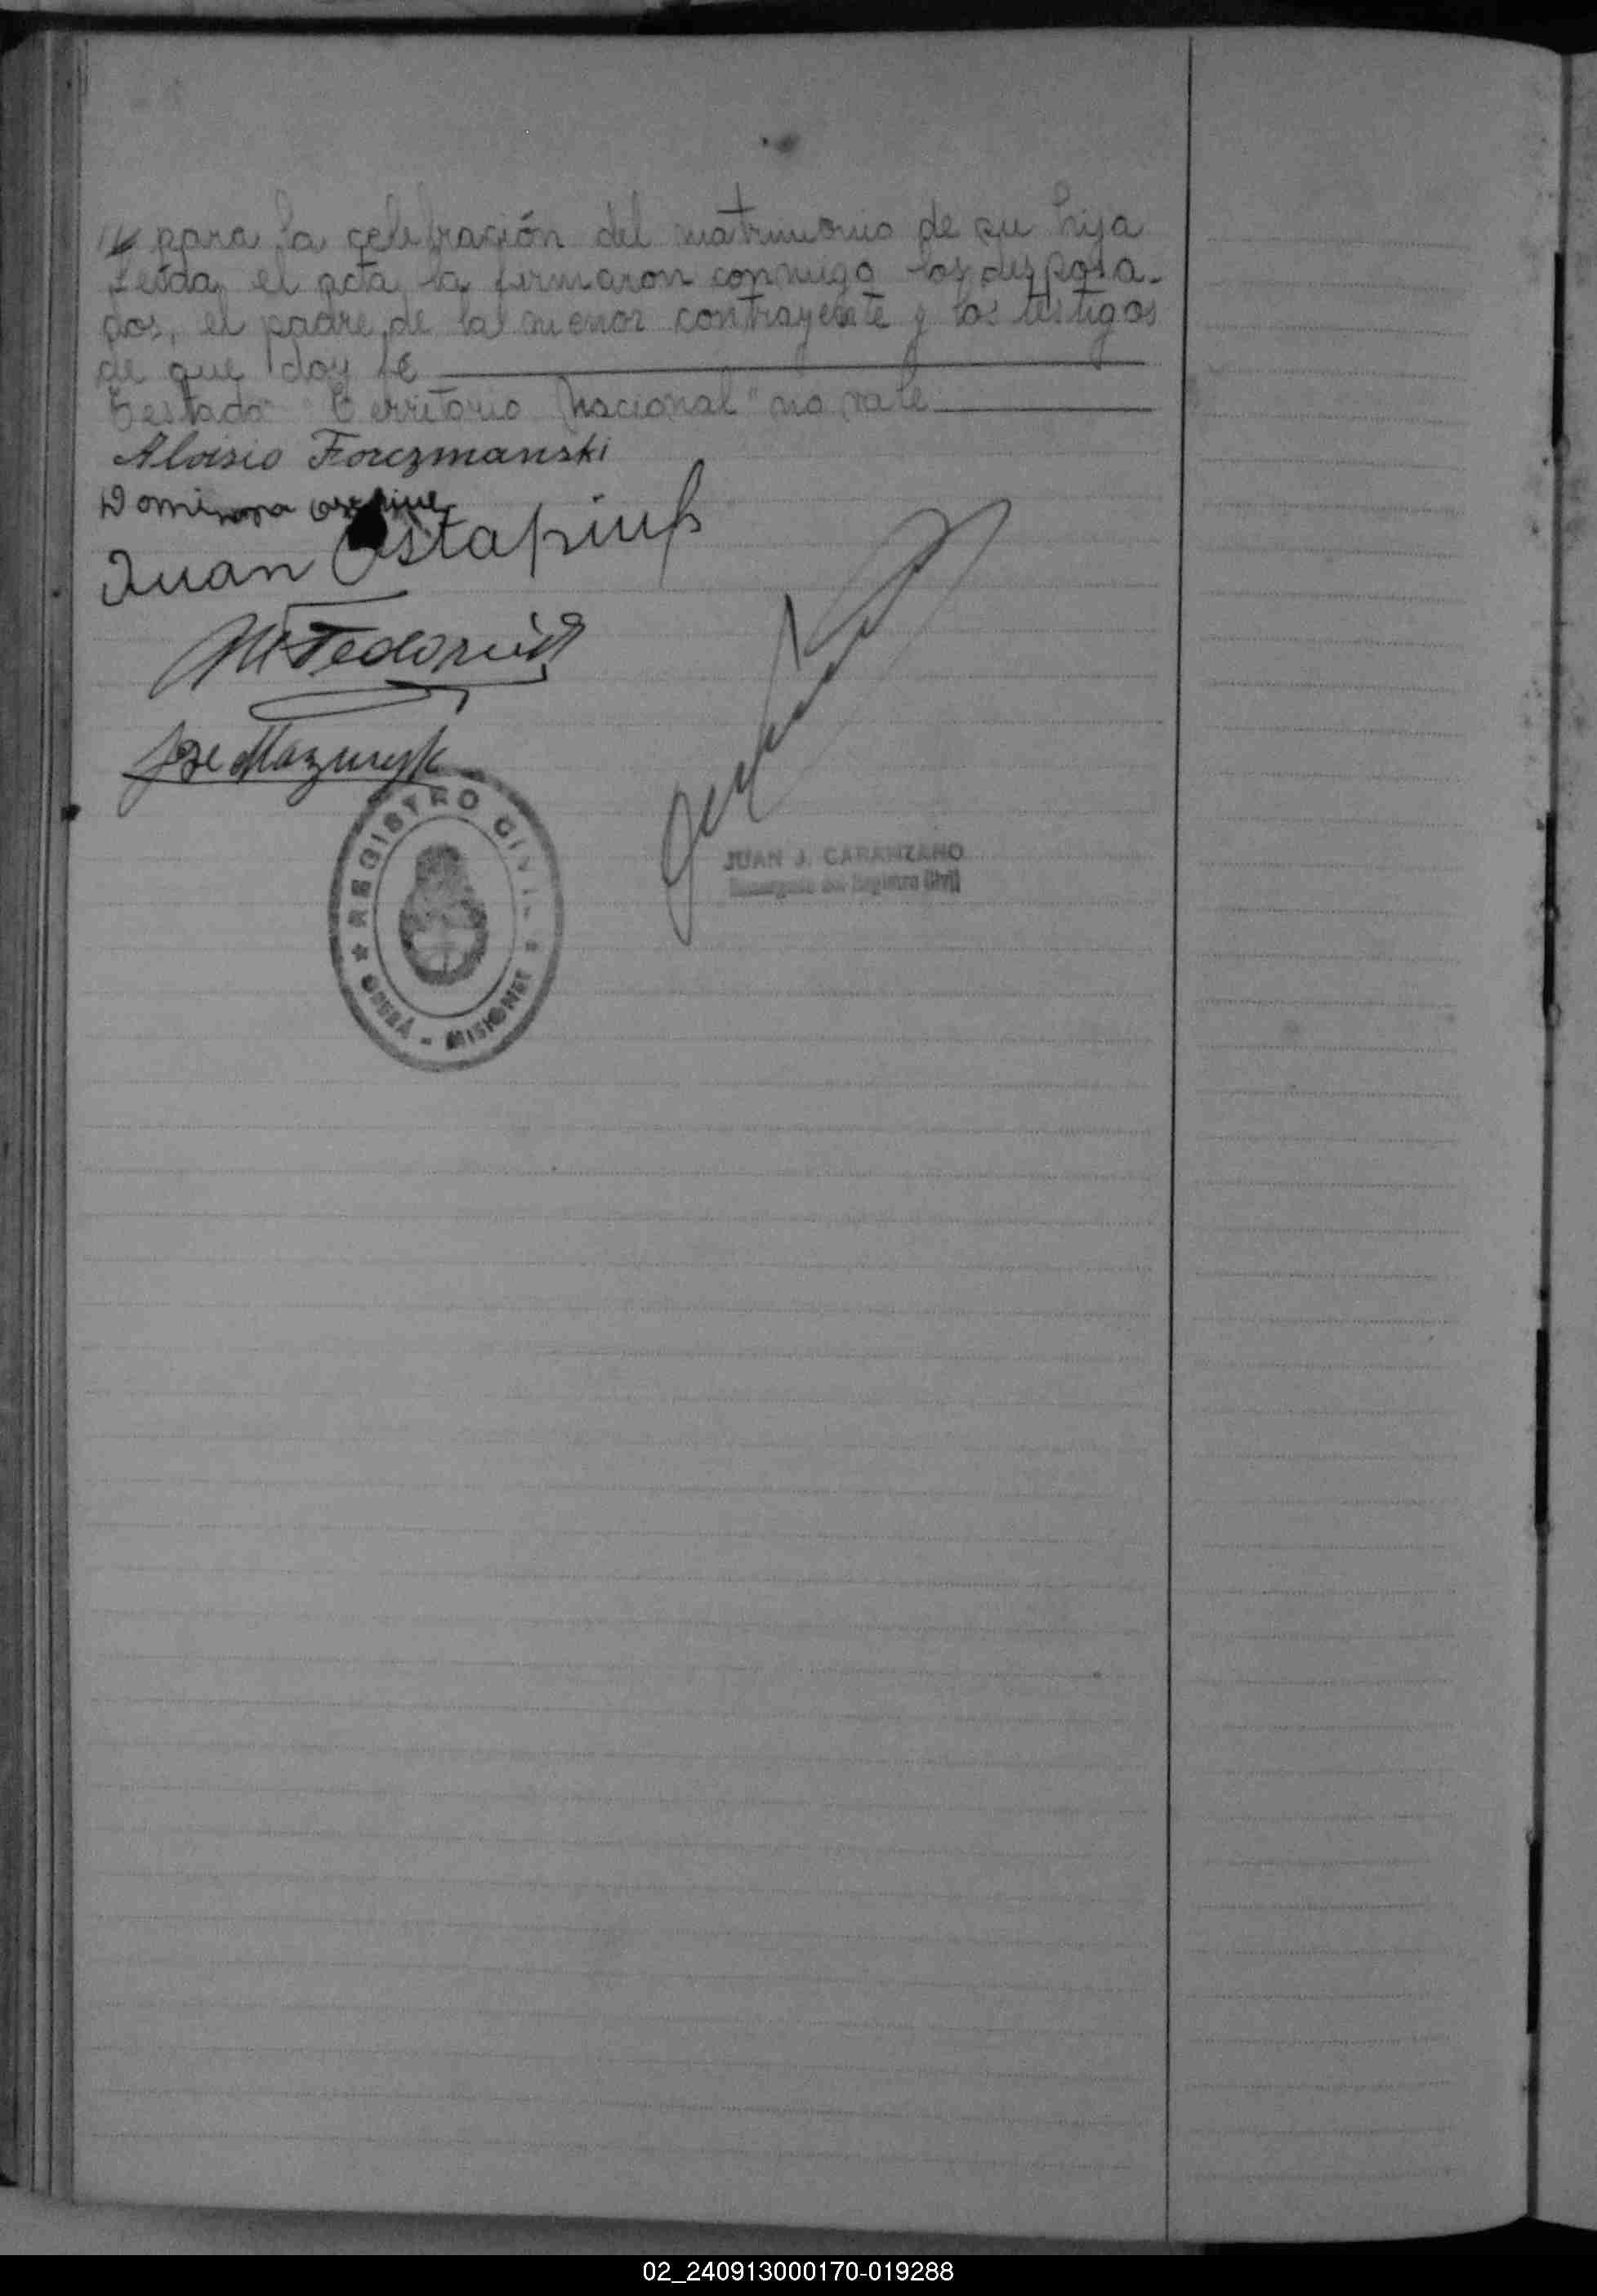 para la celebración del matrimonio de su hija
Leída el acta la firmaron conmigo los desposa-
dos, el padre de la menor contrayente y los testigos
de que doy fé
Testado "Territorio Nacional" no vale
Aloisio Forczmanski
Juan Ostapiuk
José Mazuryk
REGISTRO CIVIL
OBERÁ - MISIONES
JUAN J. CARANZANO
Encargado del Registro Civil
02_240913000170-019288